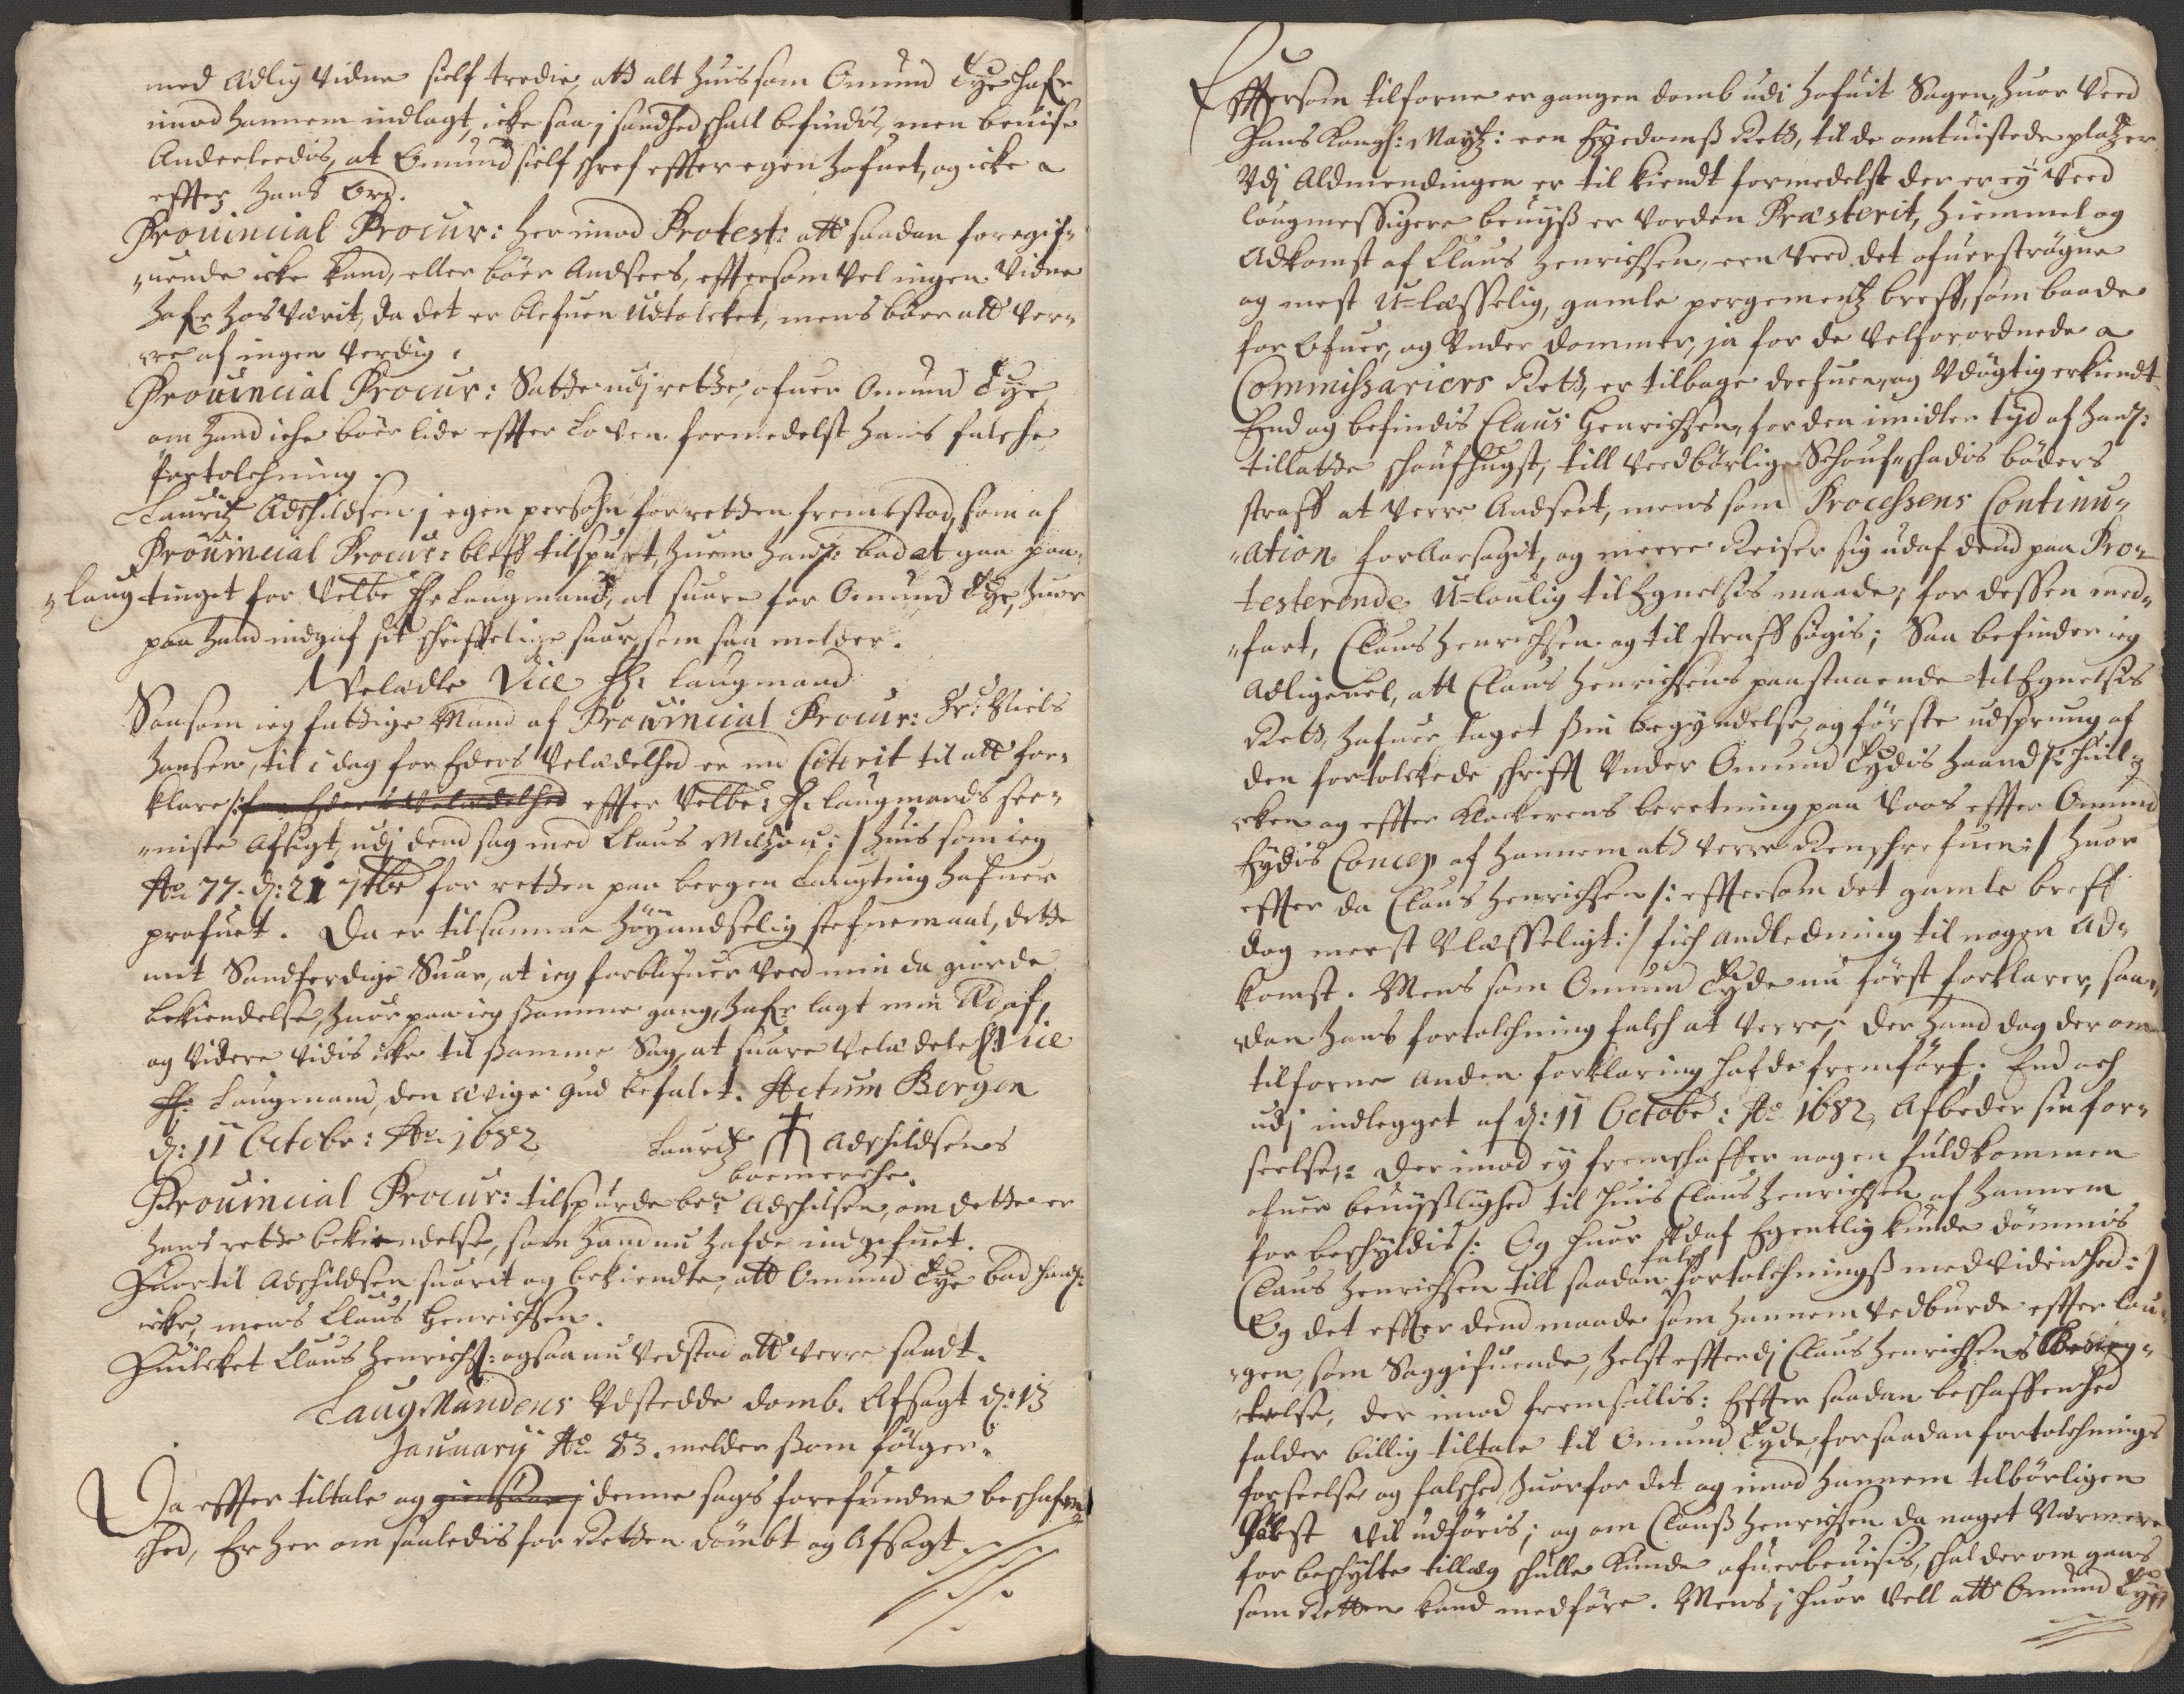 med Adlig Vidne sielf tredie, att alt huis som Omund Tyehafr
imod hannem indlagt, icke saa j sandhed schall befindis, men beuise
Anderleedis, at Omund sielf schref effter egen hofuet, og icke
effter hans Ord.
Prouincial Procur: her imod Protest: att saadan foregif¬
uende icke kand, eller bör Andsees, effttersom vel ingen Vidne
hafr hos Varit, da det er blefuen Udtolcket, mens bör att ver¬
re af ingen verdig.
Prouincial Procur: Satte udj rette, ofuer Omund Tye,
om hand icke bör lide effter Loven formedelst hans falsche
fortolchning.
Lauritz Adschildsen j egen persohn for retten fremstod, som af
Prouincial Procur: bleff tilspurt, huem hans: bad at gaa paa
laugtinget for Velbr Hr Laugmand, at suare for Omund Tye, huor
paa hand indgaf sit schrifftelige suar, som saa melder.
Veladle Vice Hr: Laugmand
Saasom ieg fattige Mand af Prouincial Procur: Sr: Niels
Hansen, til i dag for Eders Veladelhed er nu Citerit til att for¬
klare /: for Eders Veladelhed effter Velbr: Hr laugmands see¬
niste Afsigt, udj dend sag med Claus Miltzou:/ huis som ieg
Ao 77. d: 21 7tbr for retten paa bergen Laugting hafuer
profuet. Da er til samme höyandselig stefnemaal, dette
mit Sandferdige Suar, at ieg forblifuer ved min da giorde
bekiendelse, huor paa ieg samme gang, hafr lagt min Æd af,
og Videre vidis icke til samme Sag, at suare Veladele Vice
Hr: Laugmand, den Evige Gud befalet. Actum Bergen
d: 11 Octobr: Ao 1682 Lauritz Adschildsens
boemerche.
Prouincial Procur: tilspurde ber: Adschilsen, om dette er
hans rette bekiendelse, som hand nu hafde indgifuet.
Huortil Adschildsen suarit og bekiendte, att Omund Tye bad hans:
icke, mens Claus Henrichsen.
Huilcket Claus Henrichs: ogsaa nu vedstod att verre sandt.
LaugMandens Udstedde domb. Afsagt d: 13
January Ao 83. melder som fölger
Da effter tiltale og giensuar j denne sags forefundne beschafen¬
hed, Er her om saaledis for Retten dömbt og Afsagt
Effttersom tilforne er gangen domb udi hofuit Sagen, huor Ved
Hans Kongl: Maytz: een Eyedomß Rett, til de omtuistede platzer
Udj Aldmendingen er til kiendt formedelst der er ey Ved
lougmessigere beuyß er vorden Præsterit, hiemmel og
Adkomst af Claus Henrichsen, een Ved det ofuerströgne
og mest U=læsselig, gamle pergementz breff, som baade
for Ofuer, og Under dommer, ja for de Velforordnede
Commissariers Rett, er tilbage drefuen, og Udögtig erkiendt
End og befindis Claus Henrichsen, for den imidler tyd af hans:
tillatte schoufhugst, till Vedbörlige Schouf schadis böders
straff at verre Andseet, mens som Processens Continu¬
ation forAarsagit, og meere Reiser sig udaf dend paa Pro¬
testerende U=loulig tilEgnelsis maade, for dessen med¬
fart, Claus Henrichsen og til straff sögis; Saa befinder ieg
Adligeuel, att Claus Henrichsens paastaaende tilEgnelsis
Rett, hafuer taget sin begyndelse, og förste udsprung af
den fortolckede schrifft Under Omund Tydis haand /: huil¬
cken og effter Klockerens beretning paa Voss effter Omund
Tydis Concep af hannem att verre Renschrefuen:/ huor
effter da Claus Henrichsen /: effttersom det gamle breff
dog meest Ulæsseligt:/ fick Andledning til nogen Ad¬
komst. Mens som Omund Tyde nu först forklarer, saa¬
dan hans fortolchning falsch at verre, der hand dog der om
tilforne Anden forklaring hafde fremfört; End och
udj indlegget af d: 11 Octobr: Ao 1682, Afbeder sin for¬
seelse, der imod ey fremschaffer nogen fuldkommen
ofuer beuyßlighed til huis Claus Henrichsen af hannem
for beschyldis /: Og huor Udaf Egentlig kunde dömmis
Claus Henrichsen till saadan falsch fortolchningß medVidenhed:/
Og det effter dend maade som hannem Vedburde effter Lau¬
gen, som Saggifuende, helst efftterdj Claus Henrichsens
kelse, der imod fremstillis: Effter saadan beschaffenhed
falder billig tiltale til Omund Tyde, for saadan fortolchnings
forseelse og falschhed, huorfor det og imod hannem tilbörligen
 vil udföris; og om Clauß Henrichsen da noget Nærmere
for beschylte tillæg schulle kunde ofuerbeuisis, schal der om gaas
som Retten kand medföre. Mens j huor Vell att Omund Tye